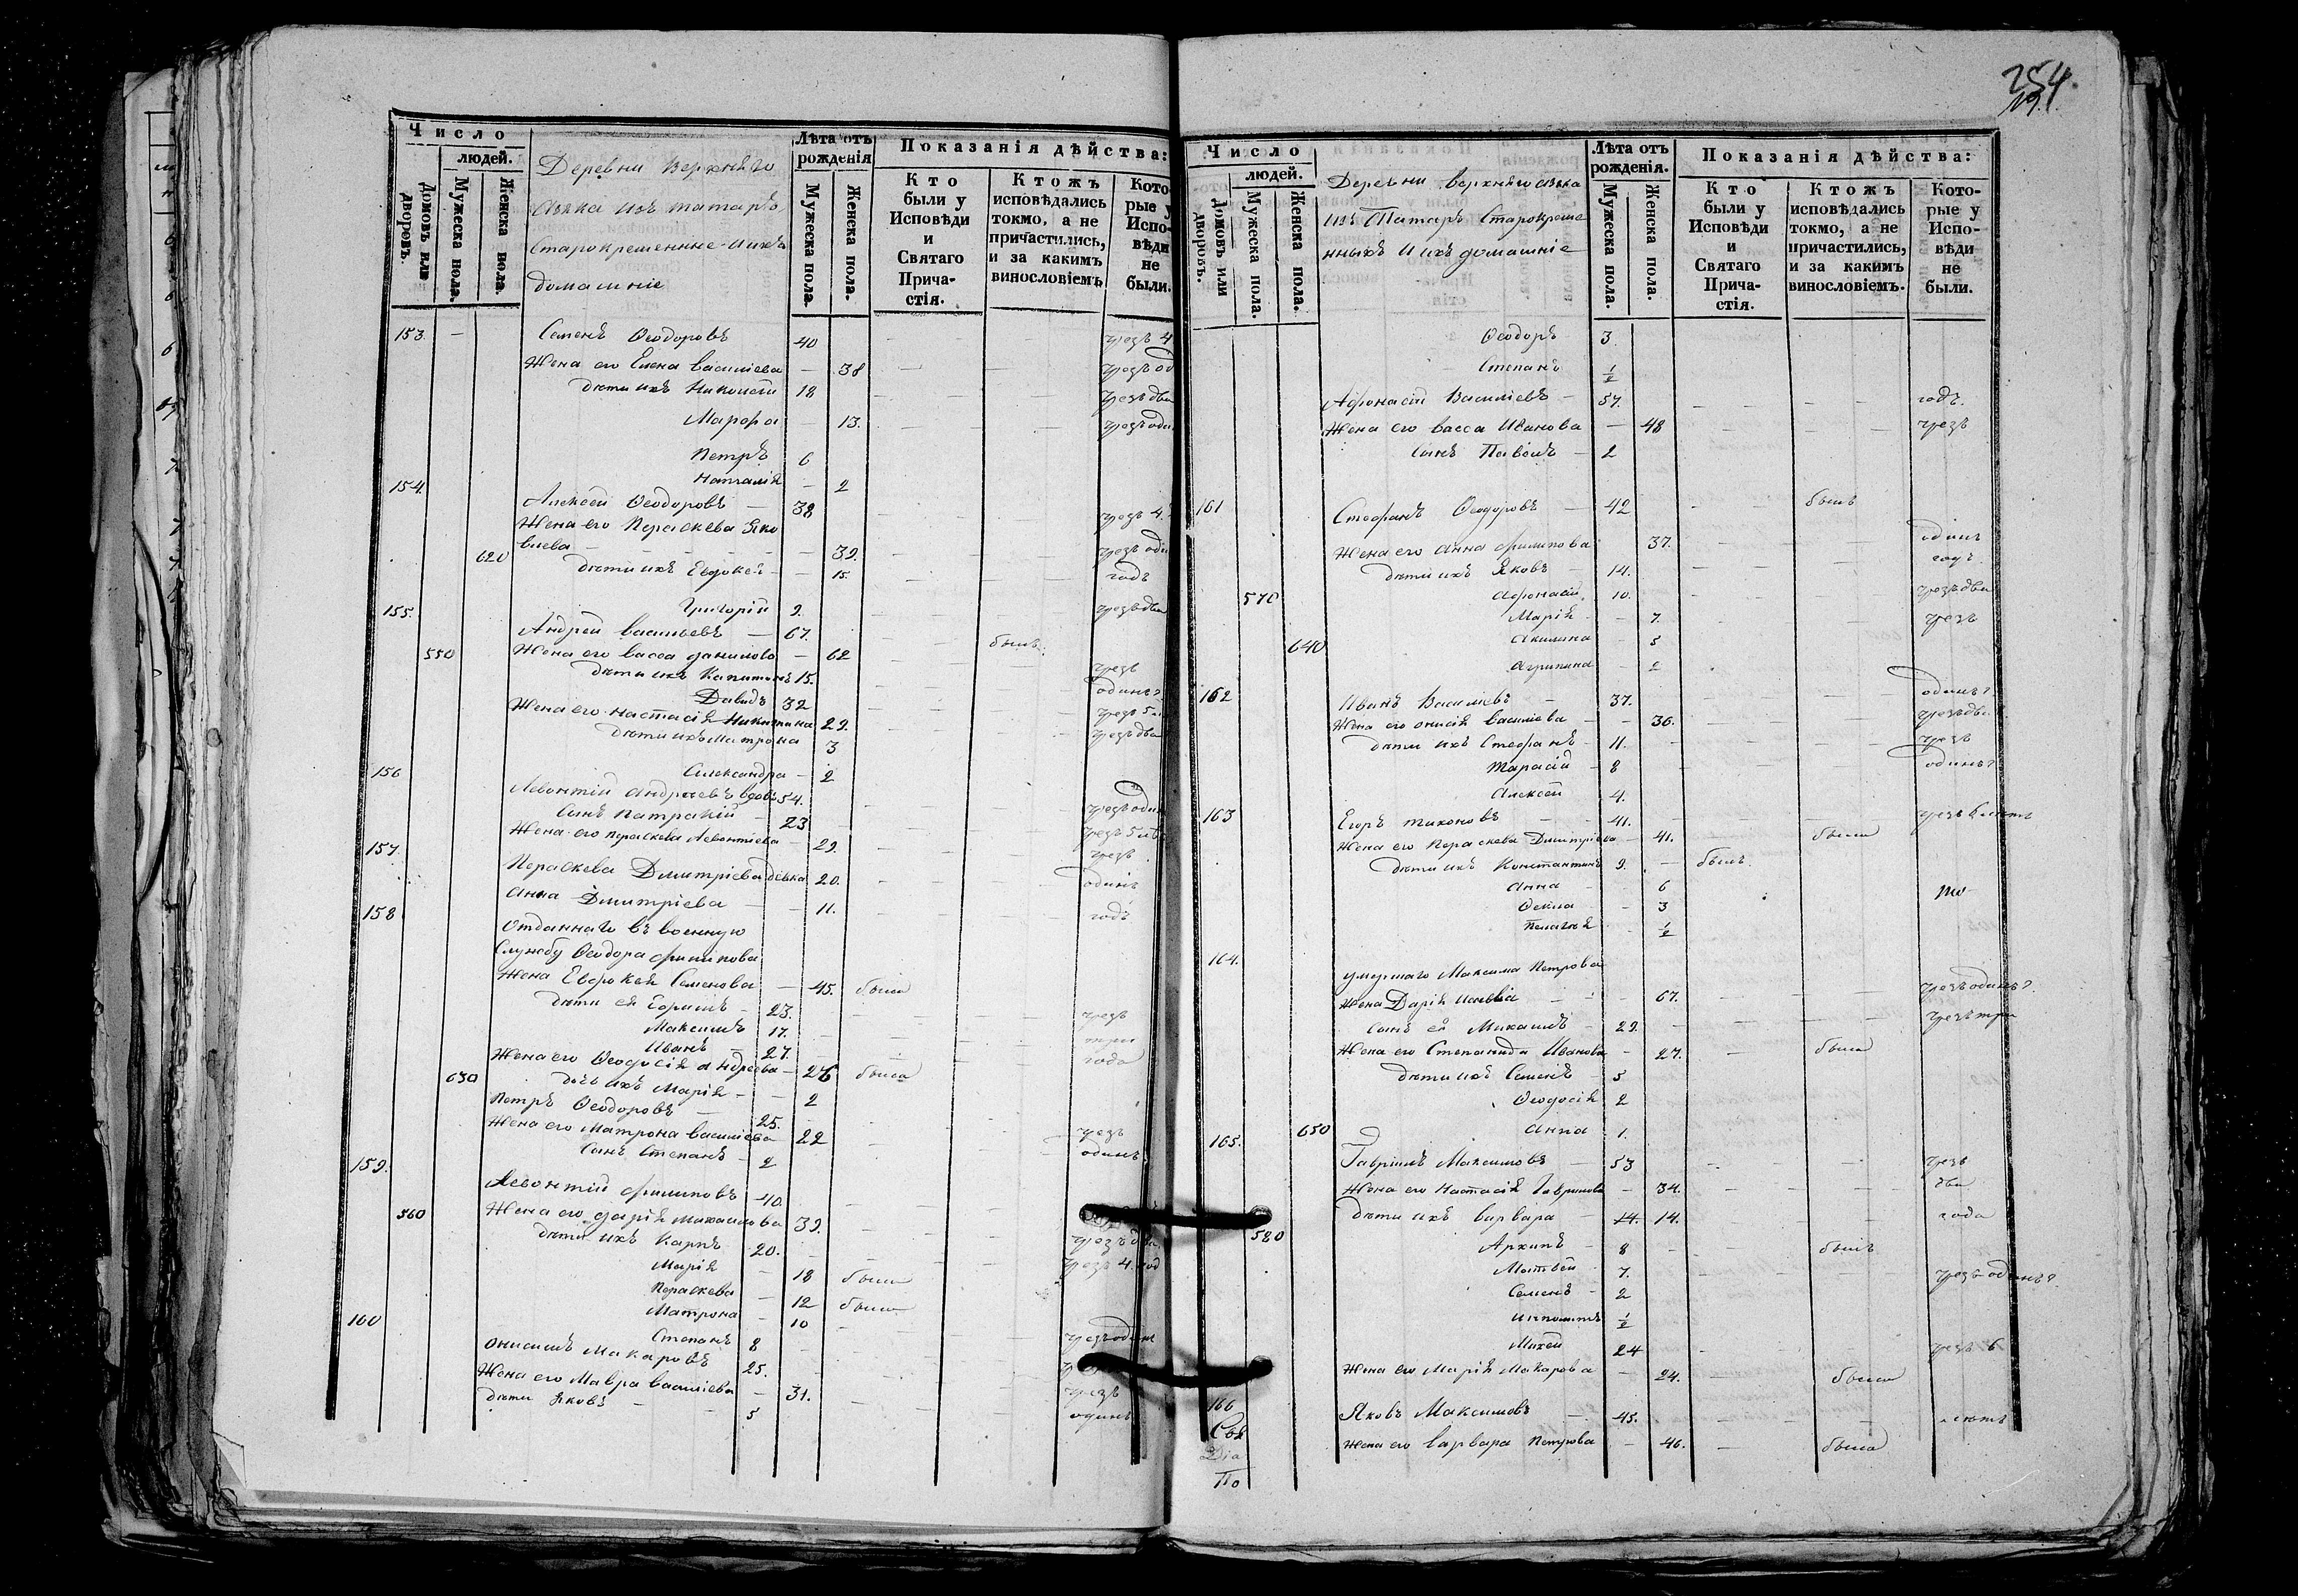 254
Число
людей.
Домовъ или дворовъ.
Мужеска пола.
Женска пола.
Деревни Верхняго
Акка изъ татаръ
Старокрещенные и ихъ
домашніе
Лѣта отъ рожденія
Мужеска пола.
Женска пола.
Показанія дѣйства:
Кто были у Исповѣди и Святаго Причастія.
Ктожъ исповѣдались токмо, а не причастились, и за какимъ винословіемъ
Которые у Исповѣди не были.
153 Семенъ Ѳеодоровъ 40 чрезъ 4
Жена его Елена Василіева 38
дѣти ихъ Николай 18 чрезъ два
Марфа 13.
Петръ 6
Наталія 2
154. Алексѣй Ѳеодоровъ 38 чрезъ 4.
Жена его Параскева Яко
влева 39.
620 дѣти ихъ Евдокея 15. годъ
Григорій 9. чрезъ два
155. Андрей Васильевъ 67. былъ
550 Жена его Васса Данилова 62 чрезъ
дѣти ихъ Капитонъ 15. одинъ
Давидъ 32
Жена его Настасія Никитина 29. чрезъ два
дѣти ихъ Матрона 3
Александра 2
156 Левонтій Андреевъ вдовъ 54.
Сынъ Патракій 23
Жена его Параскева Левонтіева 29. чрезъ
157 Параскева Дмитріева дѣвка 20. одинъ
Анна Дмитріева 11. годъ
158 Отданнаго въ военную
Службу Ѳеодора Филипова
Жена Евдокея Семенова 45. была
дѣти ея Ефримъ 23. чрезъ
Максимъ 17. три
Иванъ 27. года
Жена его Ѳеодосія Андреева 26 была
630 дочь ихъ Марія 2
Петръ Ѳеодоровъ 25.
Жена его Матрона Василіева 22 чрезъ
Сынъ Степанъ 2 одинъ
159. Левонтій Филиповъ 40.
560 Жена его Дарія Михаилова 39.
дѣти ихъ Карпъ 20. чрезъ два
Марія 18 была
Параскева 12 была
Матрона 10
Степанъ 8
160 Онисимъ Макаровъ 25.
Жена его Мавра Василіева 31. чрезъ
дѣти Яковъ 5 одинъ
Число
людей.
Домовъ или дворовъ.
Мужеска пола.
Женска пола.
Деревни Верхняго Акка
изъ Татаръ Старокреще
нныхъ и ихъ домашніе
Лѣта отъ рожденія.
Мужеска пола.
Женска пола.
Показанія дѣйства:
Кто были у Исповѣди и Святаго Причастія.
Ктожъ исповѣдались токмо, а не причастились, и за какимъ винословіемъ.
Которые у Исповѣди не были.
Ѳеодоръ 3
Степанъ ½
Афонасій Василіевъ 57. годъ.
Жена его Васса Иванова 48 чрезъ
Сынъ Павелъ 2
161 Стефанъ Ѳеодоровъ 42 былъ
Жена его Анна Филипова 37. одинъ
дѣти ихъ Яковъ 14. годъ
570 Афонасій 10. чрезъ два
Марія 7. чрезъ
640 Акилина 5
Агрипина 2
162 Иванъ Василіевъ 37. одинъ
Жена его Онисія Василіева 36. чрезъ два
дѣти ихъ Стефанъ 11. чрезъ
Тарасій 8 одинъ
Алексѣй 4.
163 Егоръ Тихоновъ 41. чрезъ 6 лѣтъ
Жена его Параскева Дмитріева 41. была
дѣти ихъ Константинъ 9. былъ
Анна 6
Ѳекла 3
Пелагея ½
164. умершаго Максима Петрова
Жена Дарія 67. чрезъ одинъ
Сынъ ея Михаилъ 29. чрезъ три
Жена его Степанида Иванова 27. была
дѣти ихъ Семенъ 5
Ѳеодосія 2
650 Анна 1.
165. Гавріилъ Максимовъ 53 чрезъ
Жена его Настасія Гаврилова 34. два
дѣти ихъ Варвара 14. 14. года
580 Архипъ 8 былъ
Матвей 7. чрезъ одинъ
Семенъ 2
Ипполитъ ½
Михей 24 чрезъ 6
Жена его Марія Макарова 24. была
166 Яковъ Максимовъ 45. лѣтъ
Жена его Варвара Петрова 46. была
Свя
Діа
По